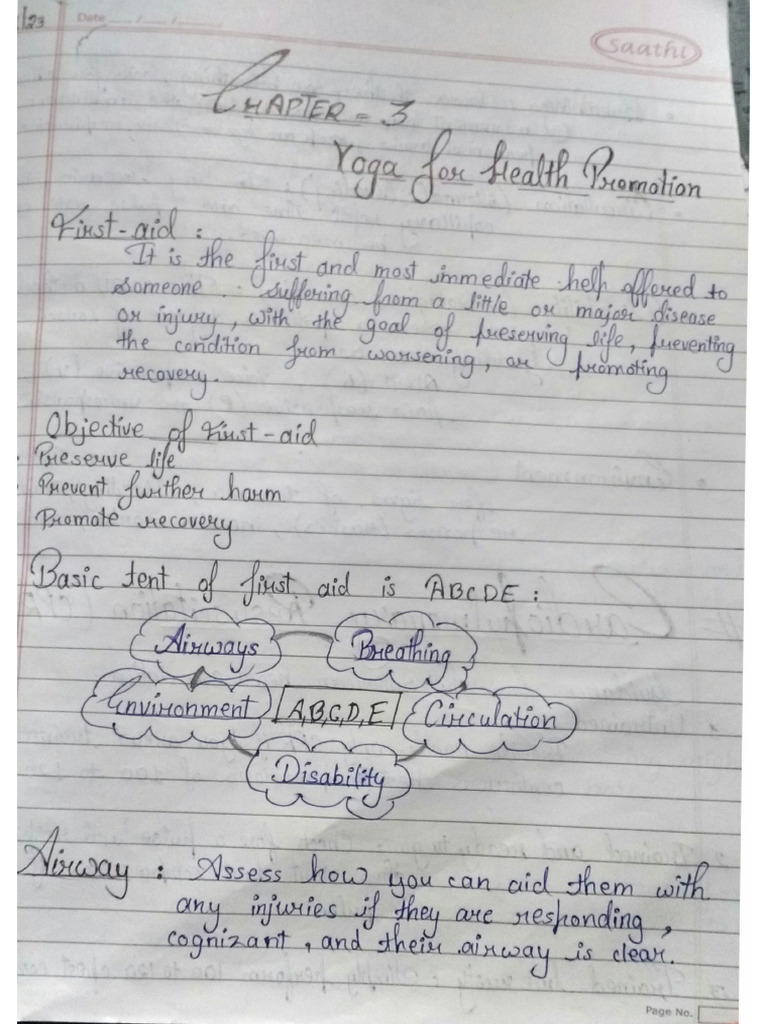 /23
Date
Saathi
CHAPTER = 3
Yoga for Health Promotion
First-aid :
It is the first and most immediate help offered to
someone. suffering from a little or major disease
or injury, with the goal of preserving life, preventing
the condition from worsening, or promoting
recovery.
Objective of First-aid
Preserve life
Prevent further harm
Promate recovery
Basic tent of first aid is ABCDE :
Airways
Breathing
Environment
A,B,C,D,E
Circulation
Disability
Airway : Assess how you can aid them with
any injuries if they are responding,
cognizant, and their airway is clear.
Page No.